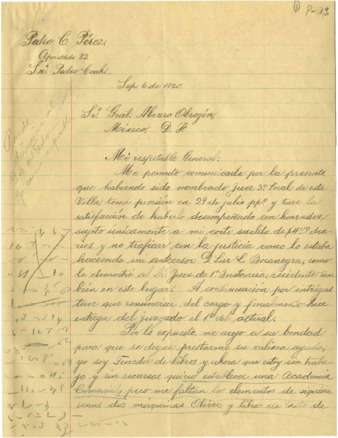 P-13
Pedro C. Pérez.
Apartado 82
Sn. Pedro Coah.
Sep. 6 de 1920
Sr. Gral. Alvaro Obregón,
México, D. F.
Mi respetable General:
Me permito comunicarle por la presente
que habiendo sido nombrado Juez 3o. Local de esta
Villa, tomé posesión en 29 de julio ppo. y tuve la
satisfacción de haberlo desempeñado con honradez
sujeto únicamente a mi corto sueldo de
y no traficar con la justicia como lo estaba
haciendo mi antecesor D. Luis C. Bocanegra, como
lo demostré al Sr. Juez de 1a. Instancia, residente tam-
bién en este lugar. A continuación por intrigas
tuve que renunciar del cargo y hice
entrega del juzgado el 1o. del actual.
Por lo expuesto me acojo a su bondad
para que se digne prestarme su valiosa ayuda,
yo soy Tenedor de Libros y ahora que estoy sin traba-
jo y sin recursos quiero establecer una Academia
Comercial, pero me faltan los elementos de siquiera
unas dos máquinas Oliver y libros de texto de